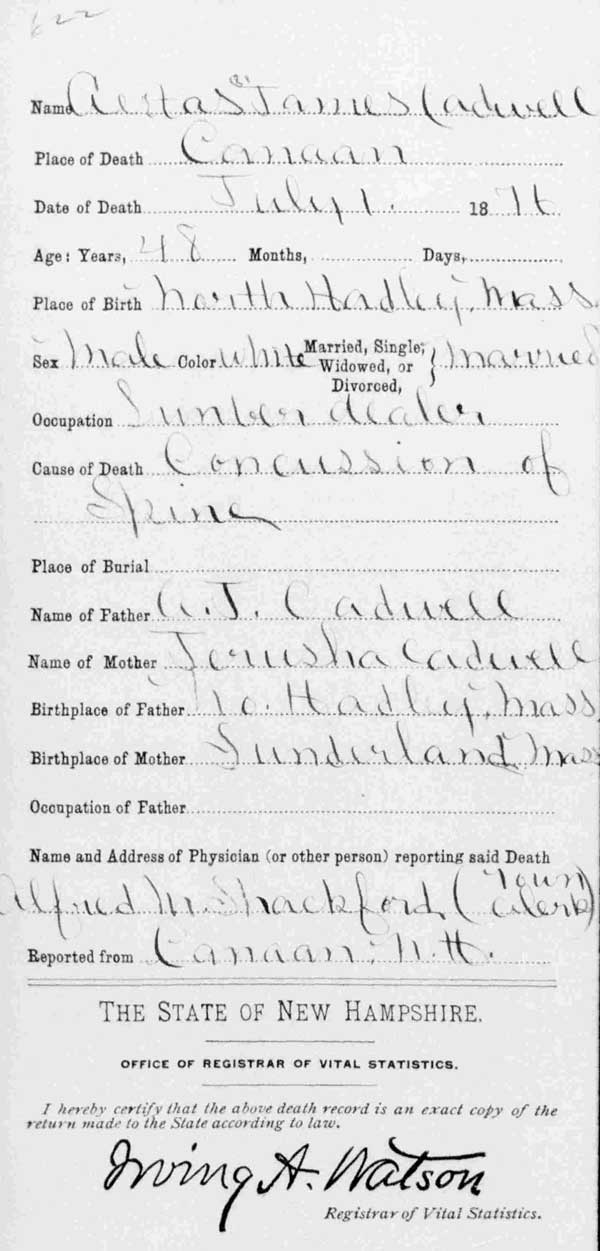 622
Name James Cadwell
Place of Death Canaan
Date of Death July 1. 1876
Age: Years, 48 Months, Days,
Place of Birth North Hadley, Mass.
Sex Male Color White Married, Single, Widowed, or Divorced, } Married
Occupation Lumber dealer
Cause of Death Concussion of
Spine
Place of Burial
Name of Father A. J. Cadwell
Name of Mother Jerusha Cadwell
Birthplace of Father No. Hadley, Mass
Birthplace of Mother Sunderland, Mass
Occupation of Father
Name and Address of Physician (or other person) reporting said Death
Alfred M. Shackford, (Town Clerk)
Reported from Canaan, N. H.
THE STATE OF NEW HAMPSHIRE.
OFFICE OF REGISTRAR OF VITAL STATISTICS.
I hereby certify that the above death record is an exact copy of the
return made to the State according to law.
Irving A. Watson
Registrar of Vital Statistics.